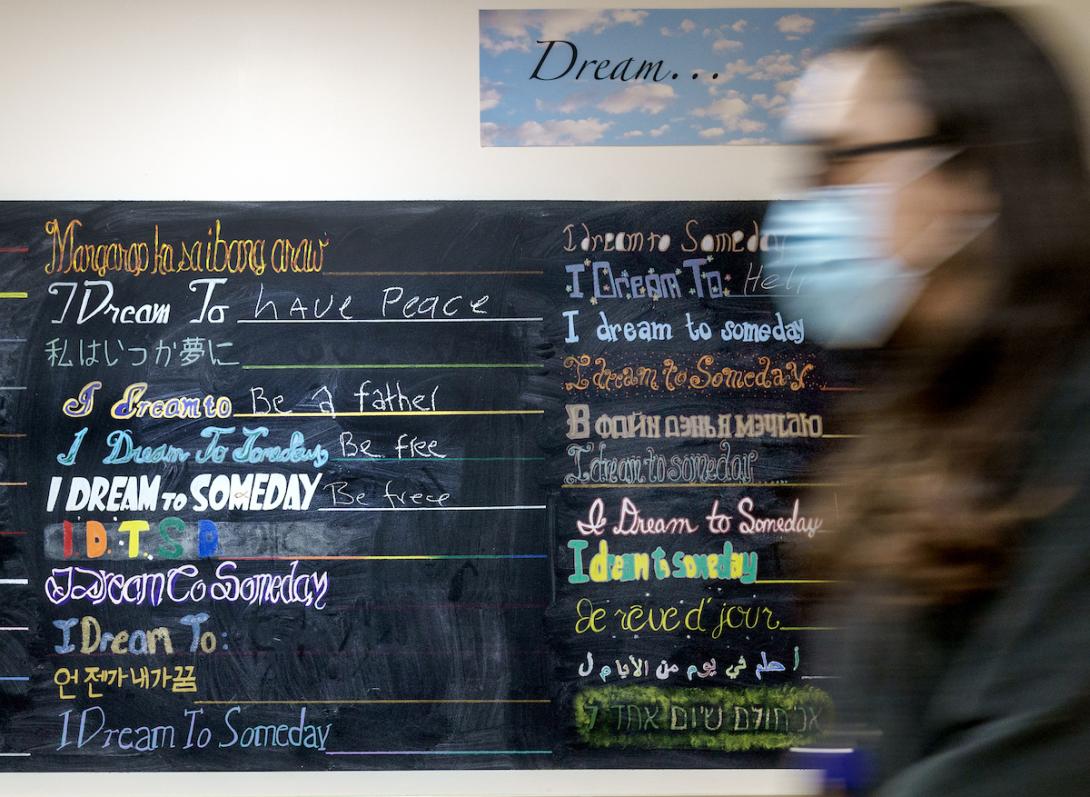 Dream...
Mangarap ka sa ibang araw
I Dream To have Peace
私はいつか夢に
I dream to Be a father
I Dream To Someday Be free
I DREAM TO SOMEDAY Be freee
I.D.T.S.D
I Dream To Someday
I Dream To:
언젠가 내가 꿈
I Dream To Someday
I dream to Someday
I Dream To: Hel
I dream to someday
I dream to Someday
В файн дэнь я мэчтаю
I dream to someday...
I Dream to Someday
I dream to someday
Je rêve d'jour
أ حلم في يوم من الأيام ل
אני חולם שיום אחד ל